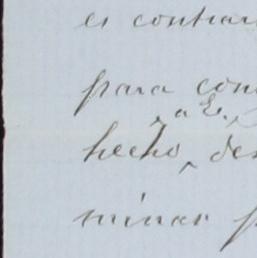 es contrar
para com
a E.
hecho, des
minar p